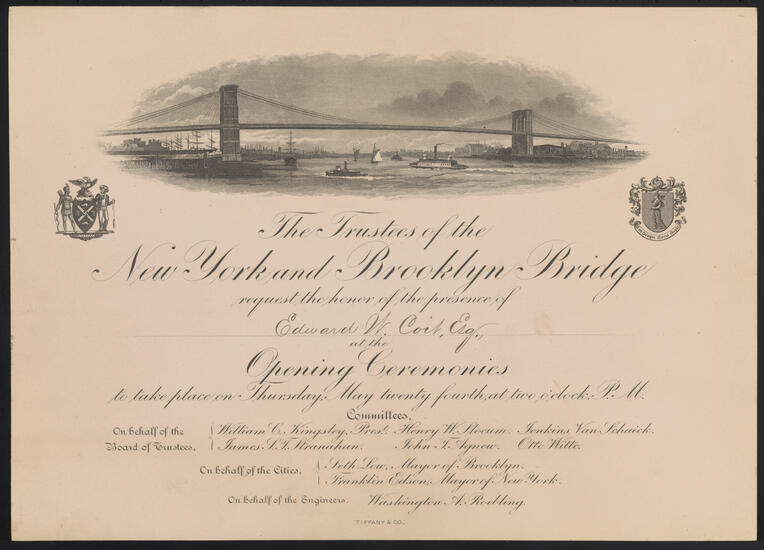 The Trustees of the
New York and Brooklyn Bridge
request the honor of the presence of
Edward W. Coit, Esq.,
at the
Opening Ceremonies
to take place on Thursday, May twenty fourth, at two o'clock, P.M.
Committees,
On behalf of the Board of Trustees,
William C. Kingsley, Prest. Henry W. Slocum. Jenkins Van Schaick.
James S.T. Stranahan. John T. Agnew. Otto Witte.
On behalf of the Cities,
Seth Low, Mayor of Brooklyn.
Franklin Edson, Mayor of New York.
On behalf of the Engineers. Washington A. Roebling.
TIFFANY & CO.